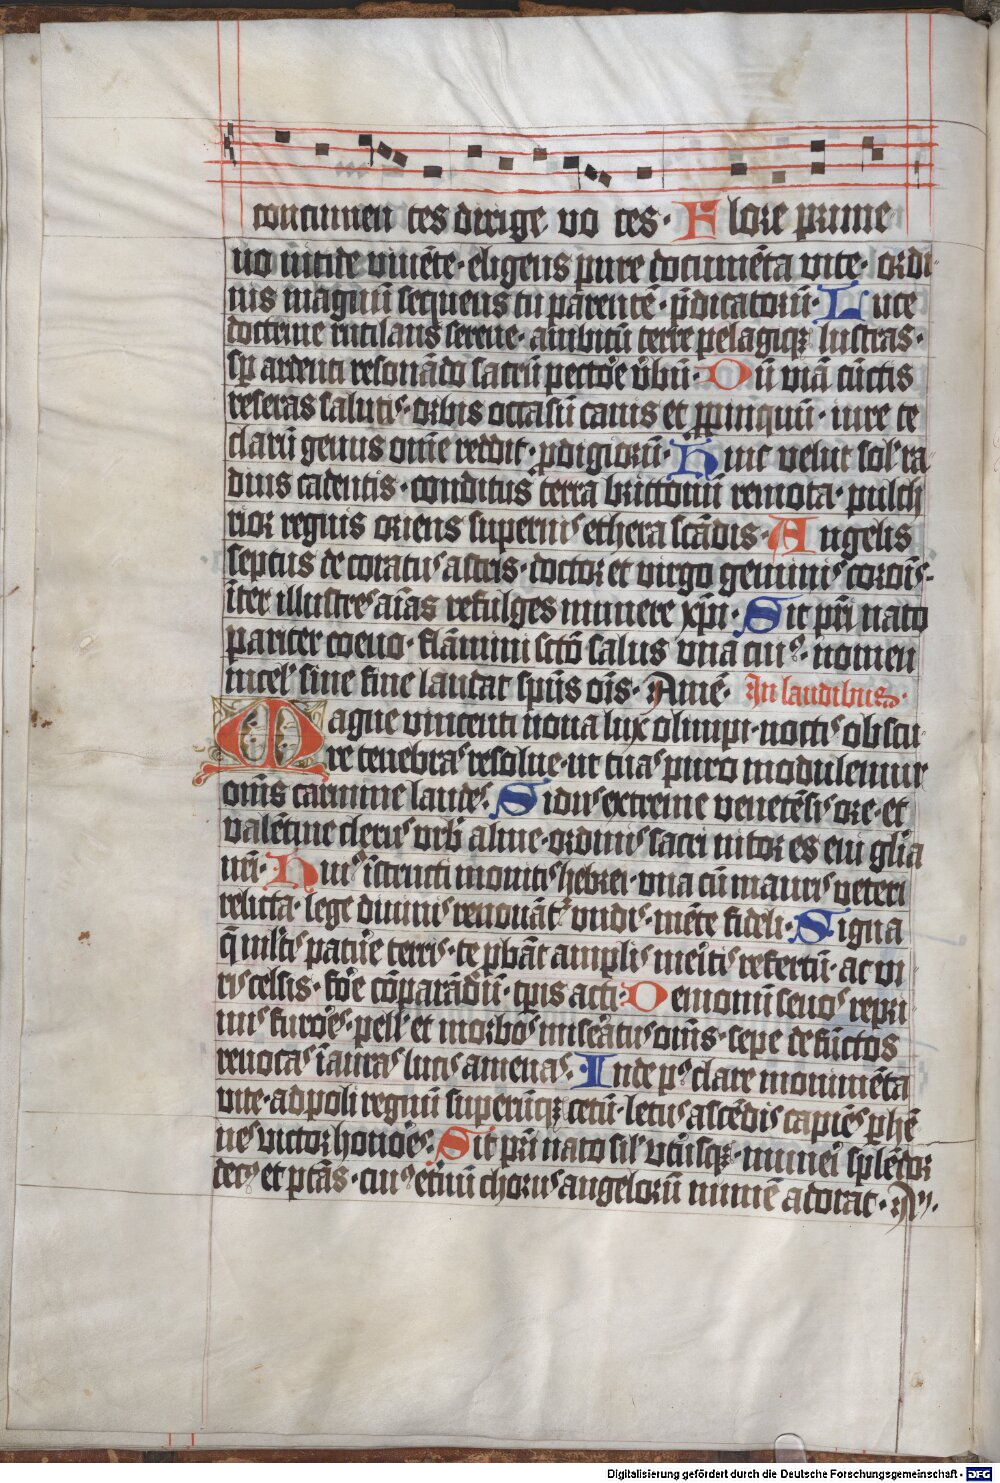 concinnen tes dirige vo ces · Flore prime
uo nitide viuēte · eligens pure documēta vite · ordi-
nis magnū sequens tu parentē · p̄dicatorū · Luce
doctrine rutilans serene · ambitū terre pelagiqꝫ lustras ·
sp̄ ardenti resonādo sacrū pectoꝛe v̓bū · Dū viā cūctis
reseras salutis · orbis occasū canis et ꝓpinquū · iure te
clarū genus om̄e reddit · ꝓdigioꝛū · Hinc velut sol ra-
dius cadentis · conditus terra brittonū remota · pulch
rior regnis oriens supernis ethera scādis · Angelis
septus decoratus astris · doctor et virgo geminis coronis ·
īter illustres aīas refulges munere xp̄i · Sit pr̄i nato
pariter coeuo · flāmini sctō salus vna cuiꝰ · nomen
incel̓ sine fine laudat sp̄us oīs · Amē · In laudibus ·
Magne vincenti noua lux olimpi · noctis obscu
re tenebras resolue · ut tuas puro modulemur
om̄s carmine laudes · Sidus extreme venetēsis ore · et
valētine clerus vrb̓ alme · ordinis sacri nitor es eui gl̄ia
nr̄i · Huiꝰ īstructi monitis hebrei · vna cū mauris veteri
relicta · lege diuinis renouāt̓ vndis · mēte fideli · Signa
q̄ mltis patuere terris · te ꝓbāt amplis meritis refertū · ac vi
ris celsis · foꝛe cōparādū · tp̄is acti · Demonū seuos repri
mis furoꝛes · pell̓ et morbos miseratus om̄s · sepe defūctos
reuocas ī auras lucis amenas · Inde pꝰ clare monimēta
vite · ad poli regnū superūqꝫ cetū · letus ascēdis capiēs phē
nes victor honoꝛes · Sit pr̄i nato sil̓ vtriusqꝫ · muneri splēdor
decꝰ et ptās̄ · cuiꝰ et̓nū chorus angeloꝛū numē adorat · Am̄ ·
Digitalisierung gefördert durch die Deutsche Forschungsgemeinschaft - DFG